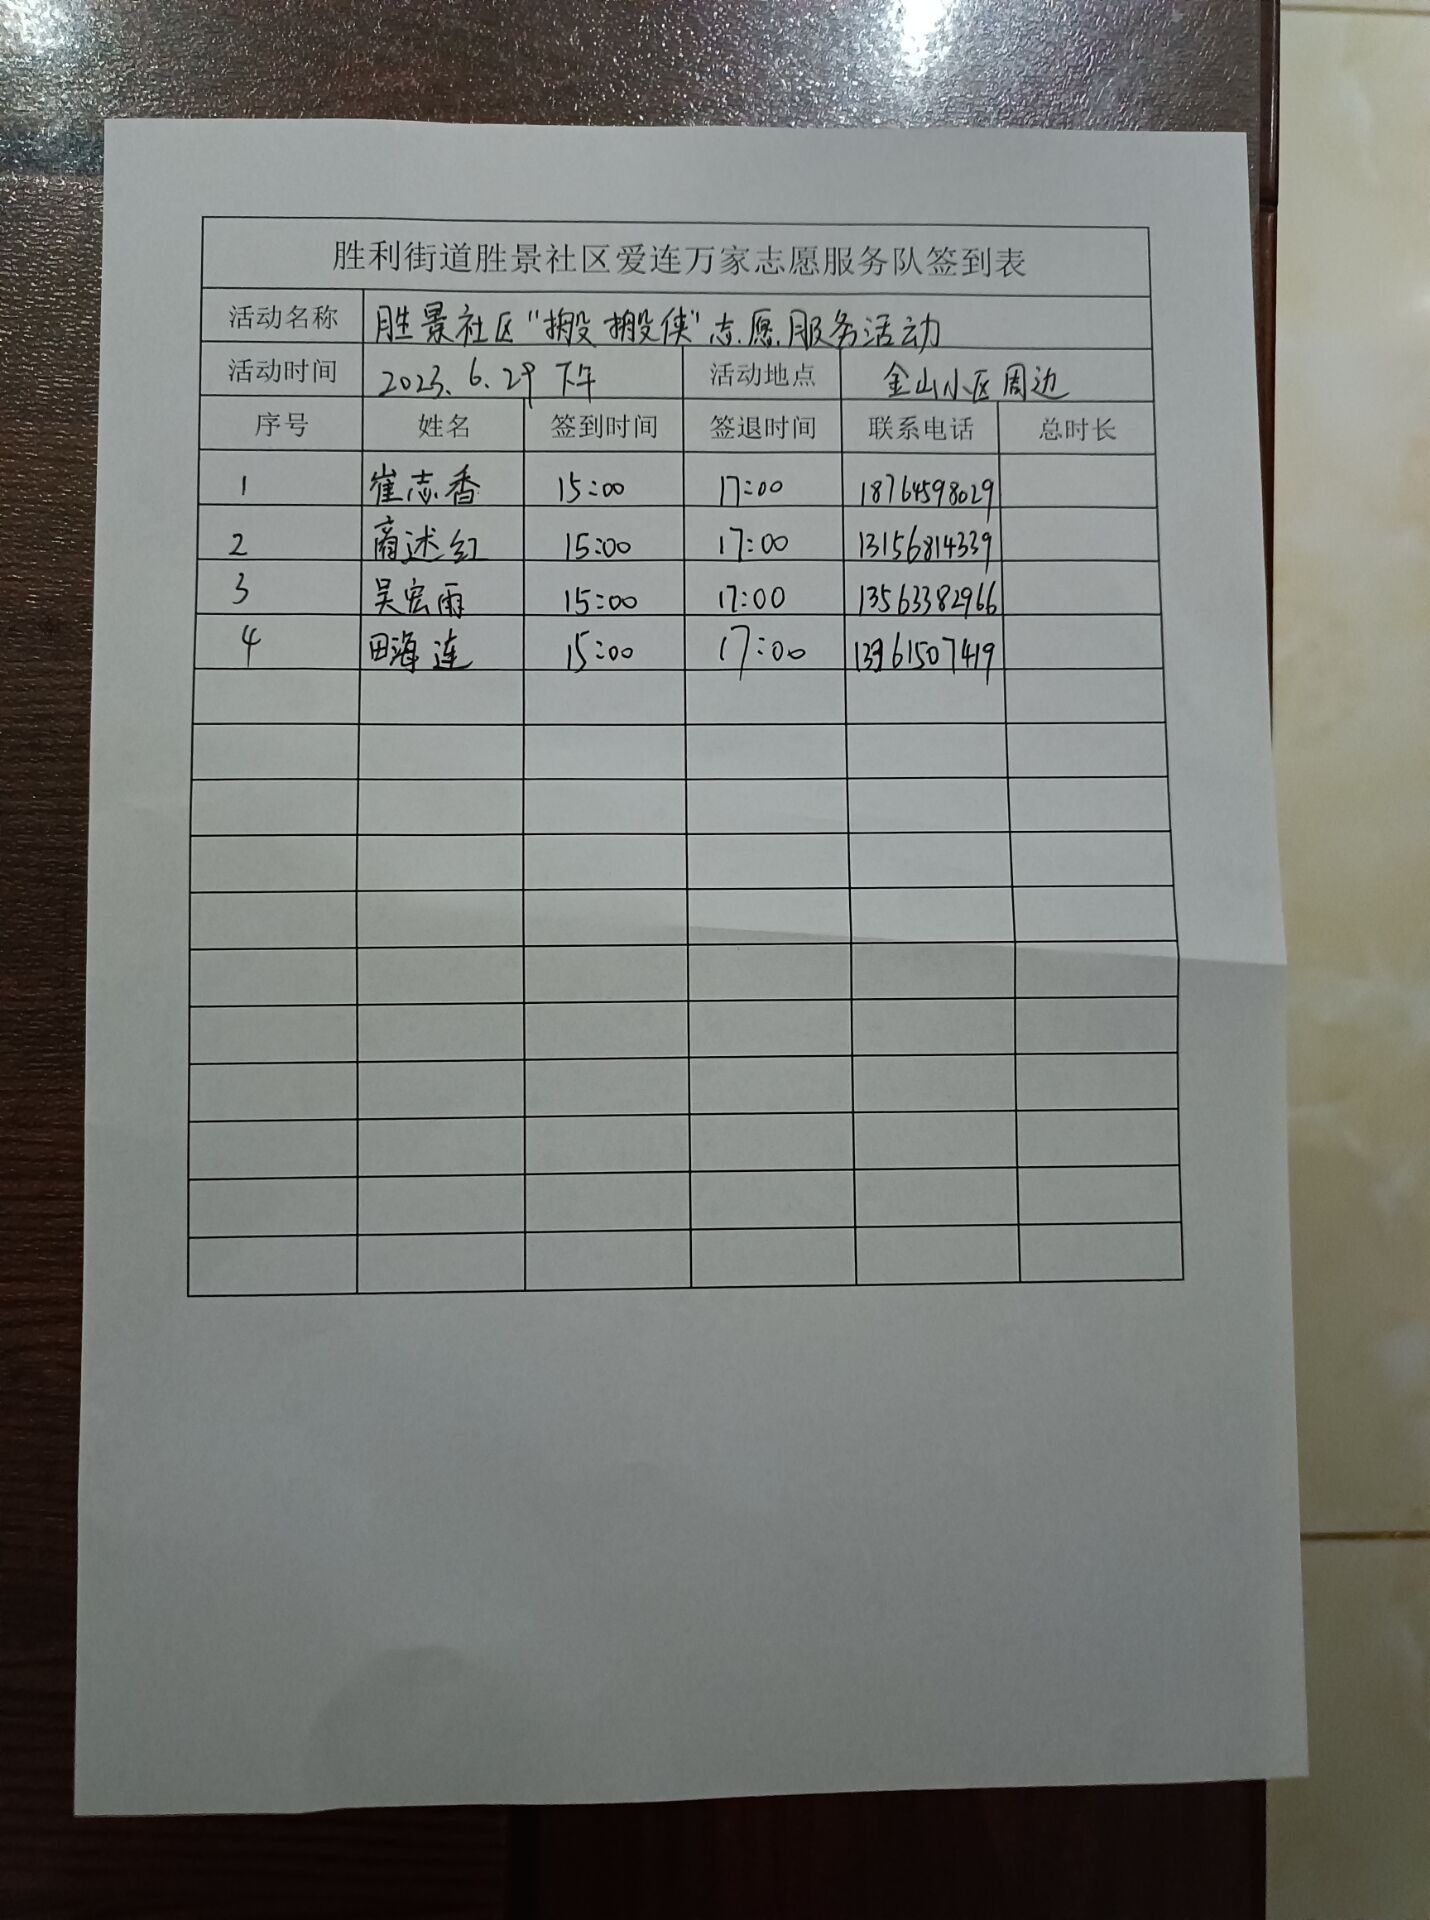 胜利街道胜景社区爱连万家志愿服务队签到表
活动名称 胜景社区“搬搬侠”志愿服务活动
活动时间 2023.6.29 下午 活动地点 金山小区周边
序号 姓名 签到时间 签退时间 联系电话 总时长
1 崔志香 15:00 17:00 18764598029
2 商述红 15:00 17:00 13156814339
3 吴宏雨 15:00 17:00 13563382966
4 田海连 15:00 17:00